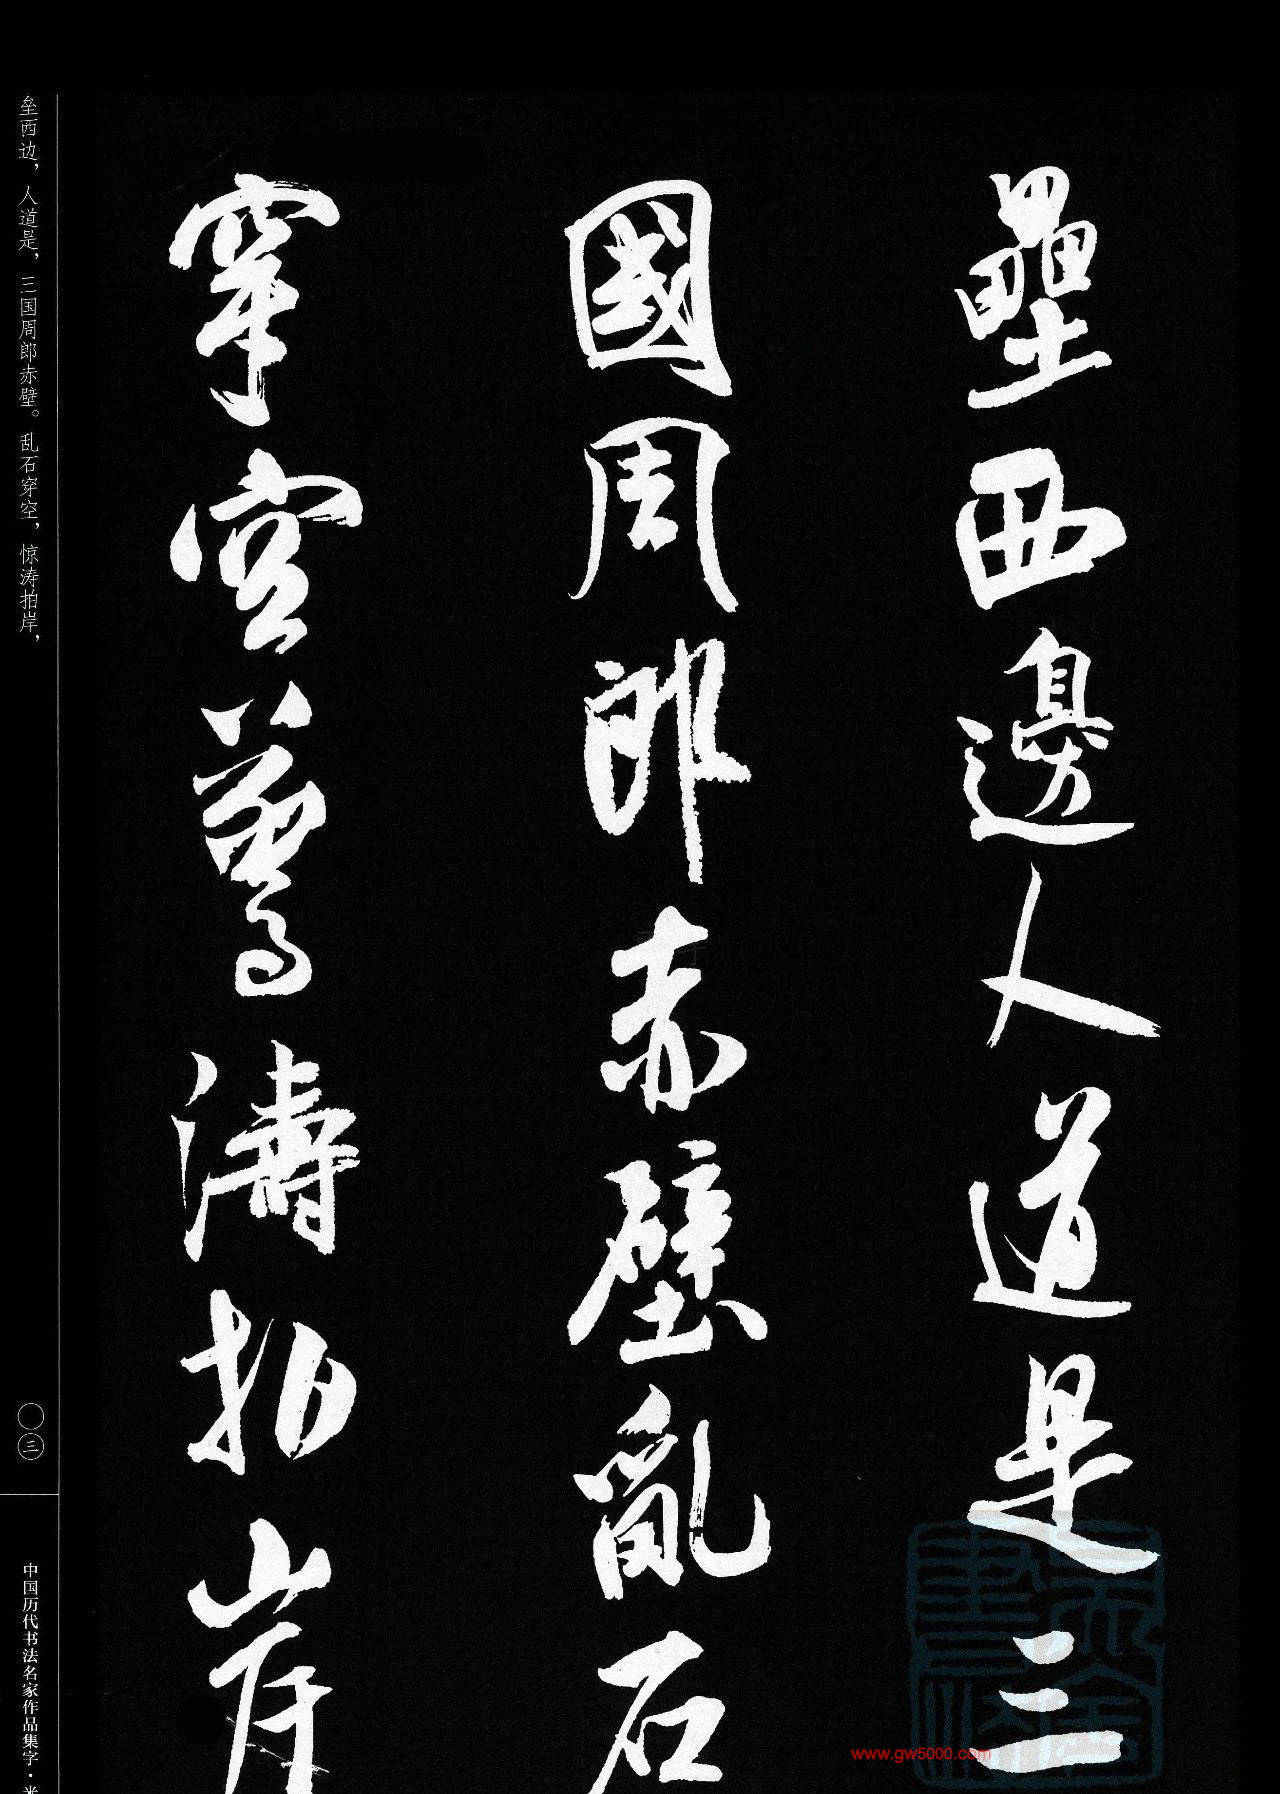 壘西邊人道是三
國周郎赤壁亂石
穿空驚濤拍岸
垒西边，人道是，三国周郎赤壁。乱石穿空，惊涛拍岸，
〇三
中国历代书法名家作品集字·米
www.gw5000.com